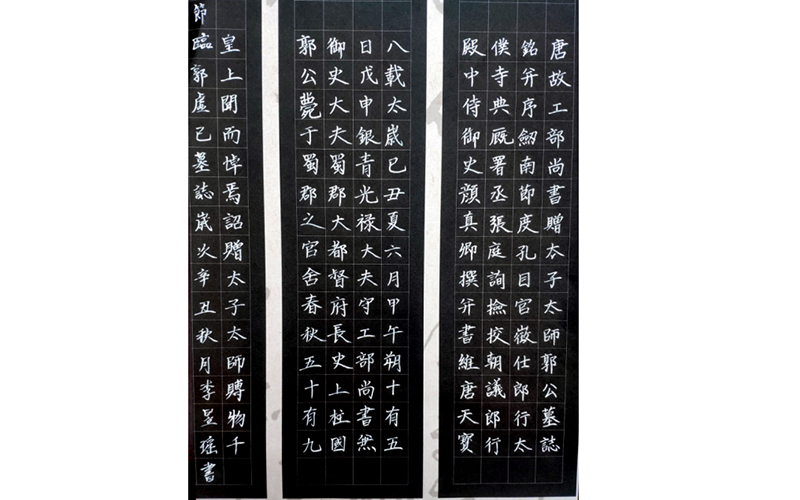 唐故工部尚書贈太子太師郭公墓誌
銘并序劒南節度孔目官徵仕郎行太
僕寺典厩署丞張庭詢撿挍朝議郎行
殿中侍御史顔真卿撰并書維唐天寶
八載太歲巳丑夏六月甲午朔十有五
日戊申銀青光禄大夫守工部尚書無
御史大夫蜀郡大都督府長史上柱國
郭公薨于蜀郡之官舍春秋五十有九
皇上聞而悼焉詔贈太子太師賻物千
節臨郭虛己墓誌歲次辛丑秋月李昱瑶書